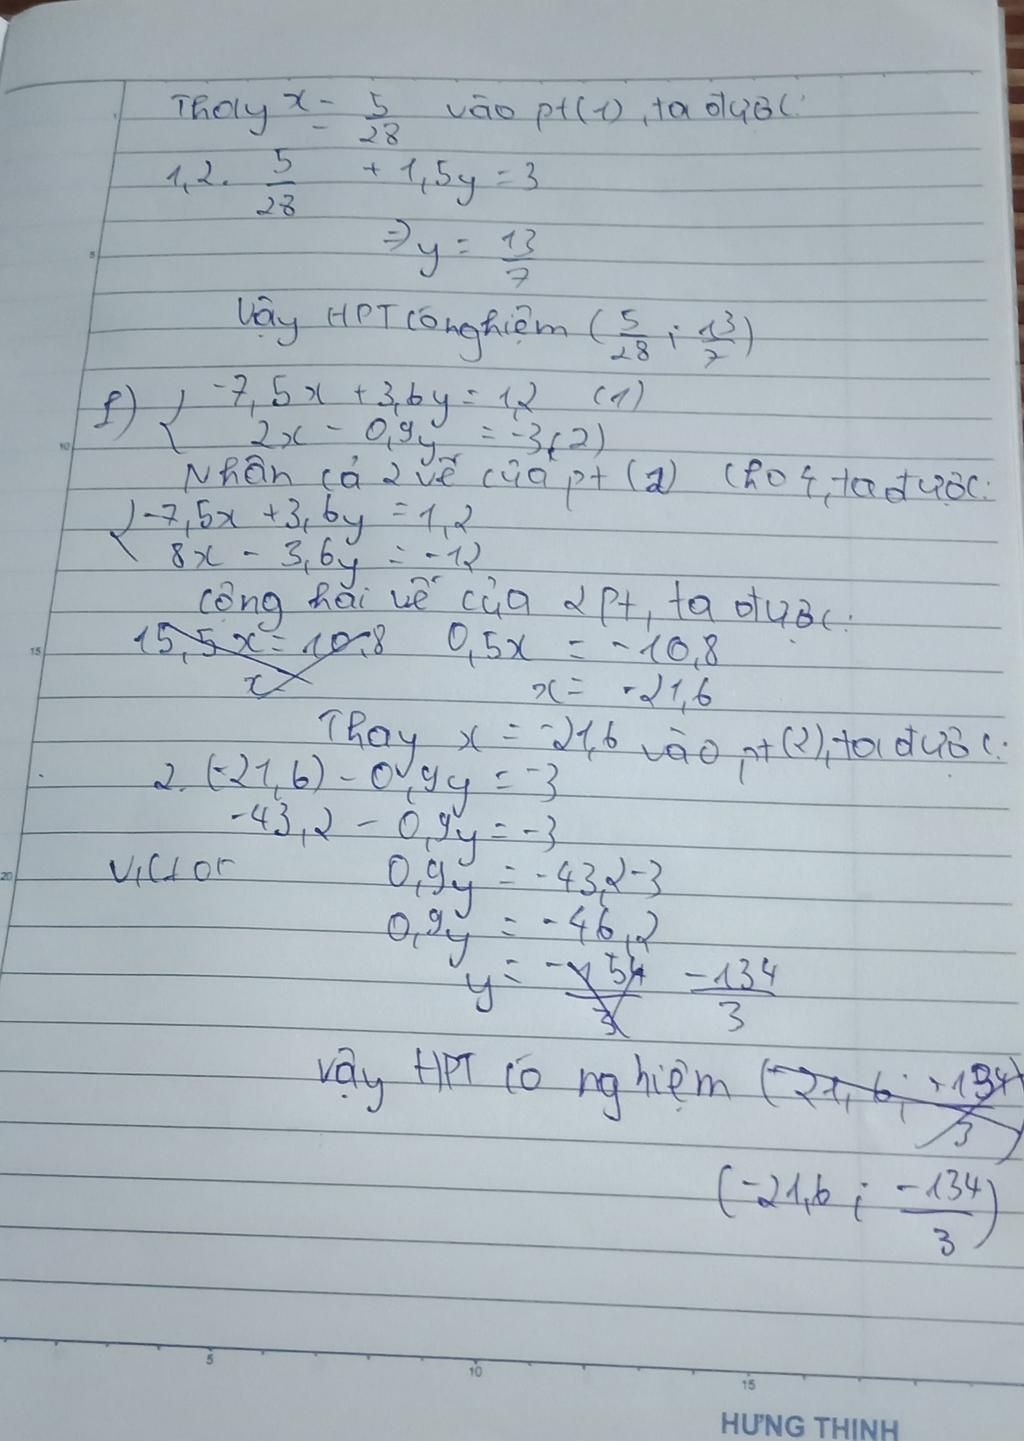 Thay x = 5/28 vào pt(1), ta được:
1,2. 5/28 + 1,5y = 3
⇒ y = 13/7
Vậy HPT có nghiệm (5/28 ; 13/7)
f) { -7,5x + 3,6y = 1,2 (1)
2x - 0,9y = -3 (2)
Nhân cả 2 vế của pt (2) cho 4, ta được:
{ -7,5x + 3,6y = 1,2
8x - 3,6y = -12
Cộng hai vế của 2 pt, ta được:
15,5x = 10,8 0,5x = -10,8
x x = -21,6
Thay x = -21,6 vào pt(2), ta được:
2. (-21,6) - 0,9y = -3
-43,2 - 0,9y = -3
Victor 0,9y = -43,2-3
0,9y = -46,2
y = -154/3 -134/3
Vậy HPT có nghiệm (-21,6; -134/3)
(-21,6 ; -134/3)
5 10 15 20
5 10 15
HƯNG THỊNH